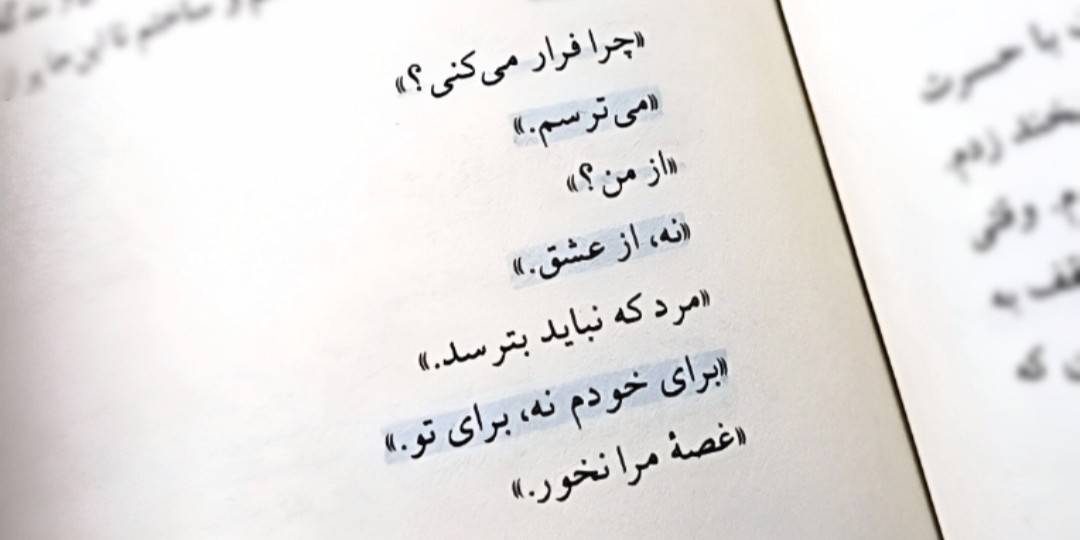 «چرا فرار می‌کنی؟»
«می‌ترسم.»
«از من؟»
«نه، از عشق.»
«مرد که نباید بترسد.»
«برای خودم نه، برای تو.»
«غصهٔ مرا نخور.»
با حسرت
زدم.
وقتی
به
که